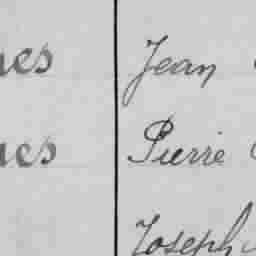 nes Jean
nes Pierre
Joseph